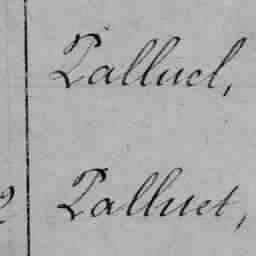 Palluel,
2 Palluet,